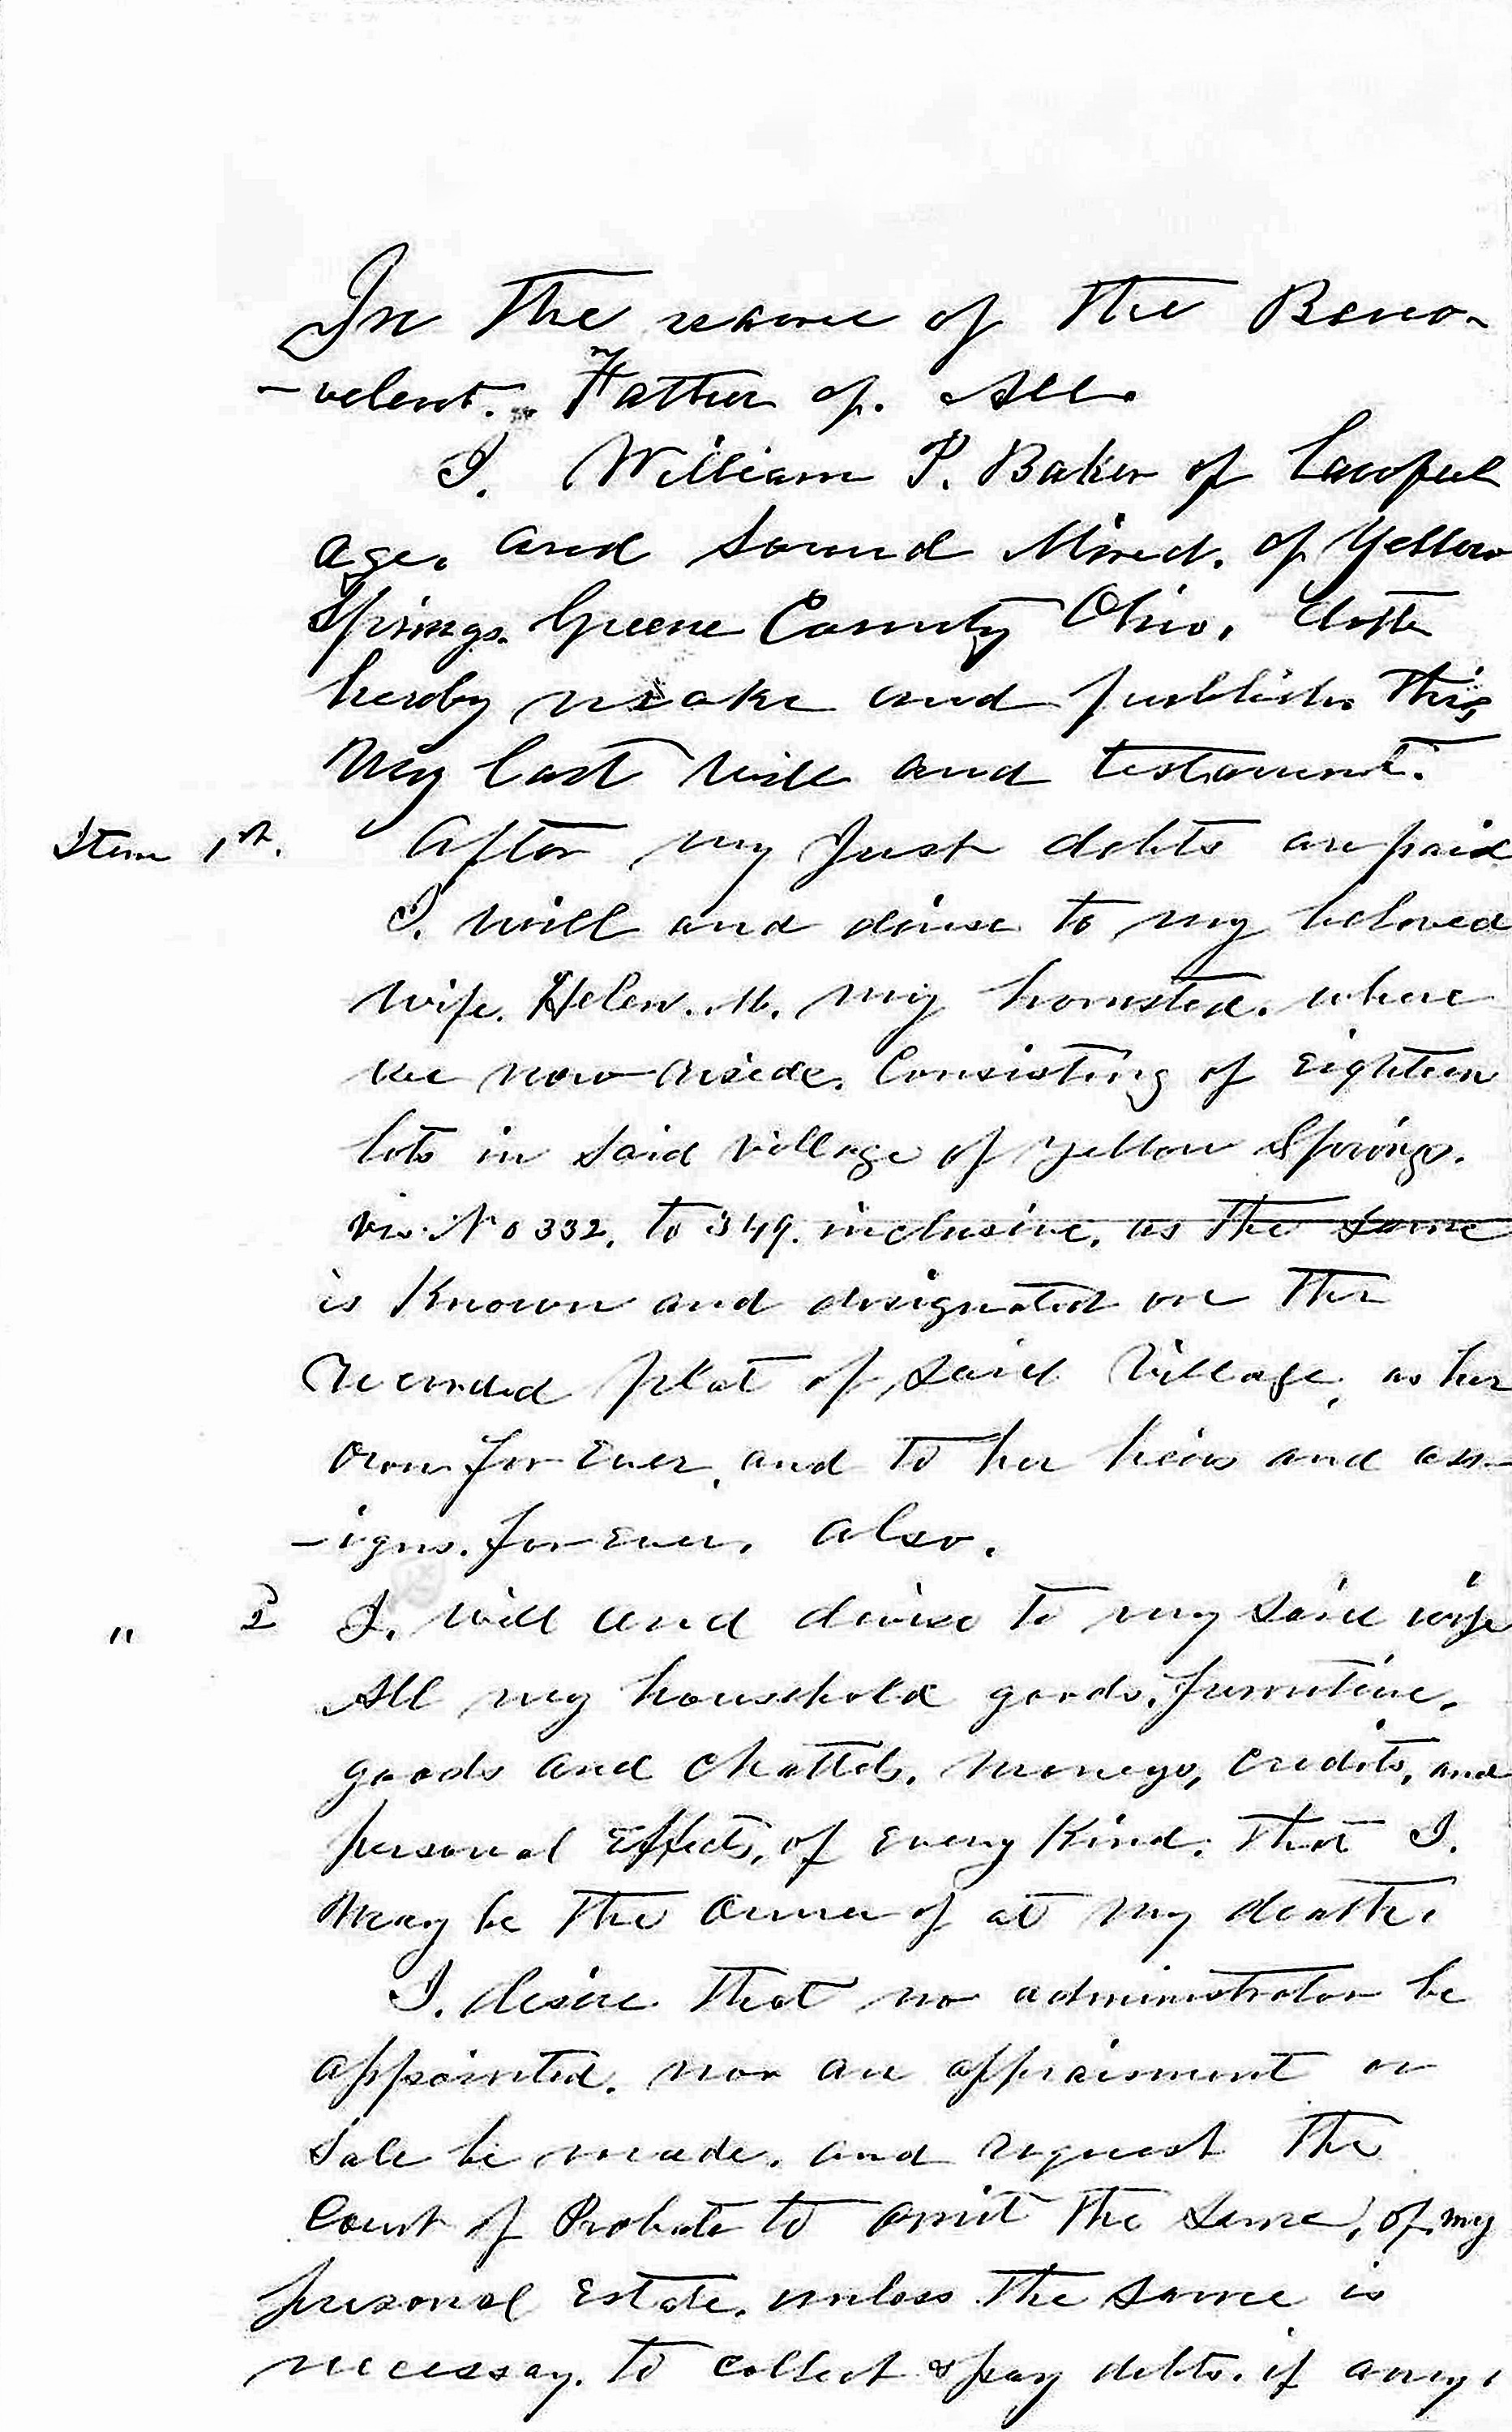 In the name of the Benev-
-velent. Father of. All.
I. William P. Baker of Lawful
age. and Sound Mind. of Yellow
Springs. Greene County Ohio, doth
herby make and publish. this
My last will and testament.
Item 1st. After my Just debts are paid
I. will and divise to my beloved
wife. Helen. M. my homsted. where
we now reside. Consisting of Eighteen
lots in Said Village of Yellow Springs.
viz. No 332. to 349. inclusive, as the Same
is Known and designated on the
recorded plat of Said Village, as her
own for Ever, and to her heirs and ass-
-igns. for Ever. also.
" 2 I. will and divise to my Said wife
All my household goods, furniture,
goods and chattels, moneys, credits, and
personal Effects, of Every Kind. that I.
may be the owner of at my death.
I. desire that no administrator be
appointed. nor an appraisment or
Sale be made. and request the
Court of Probate to omit the Same, of my
personal Estate. unless the Same is
necessay. to collect & pay debts. if any.